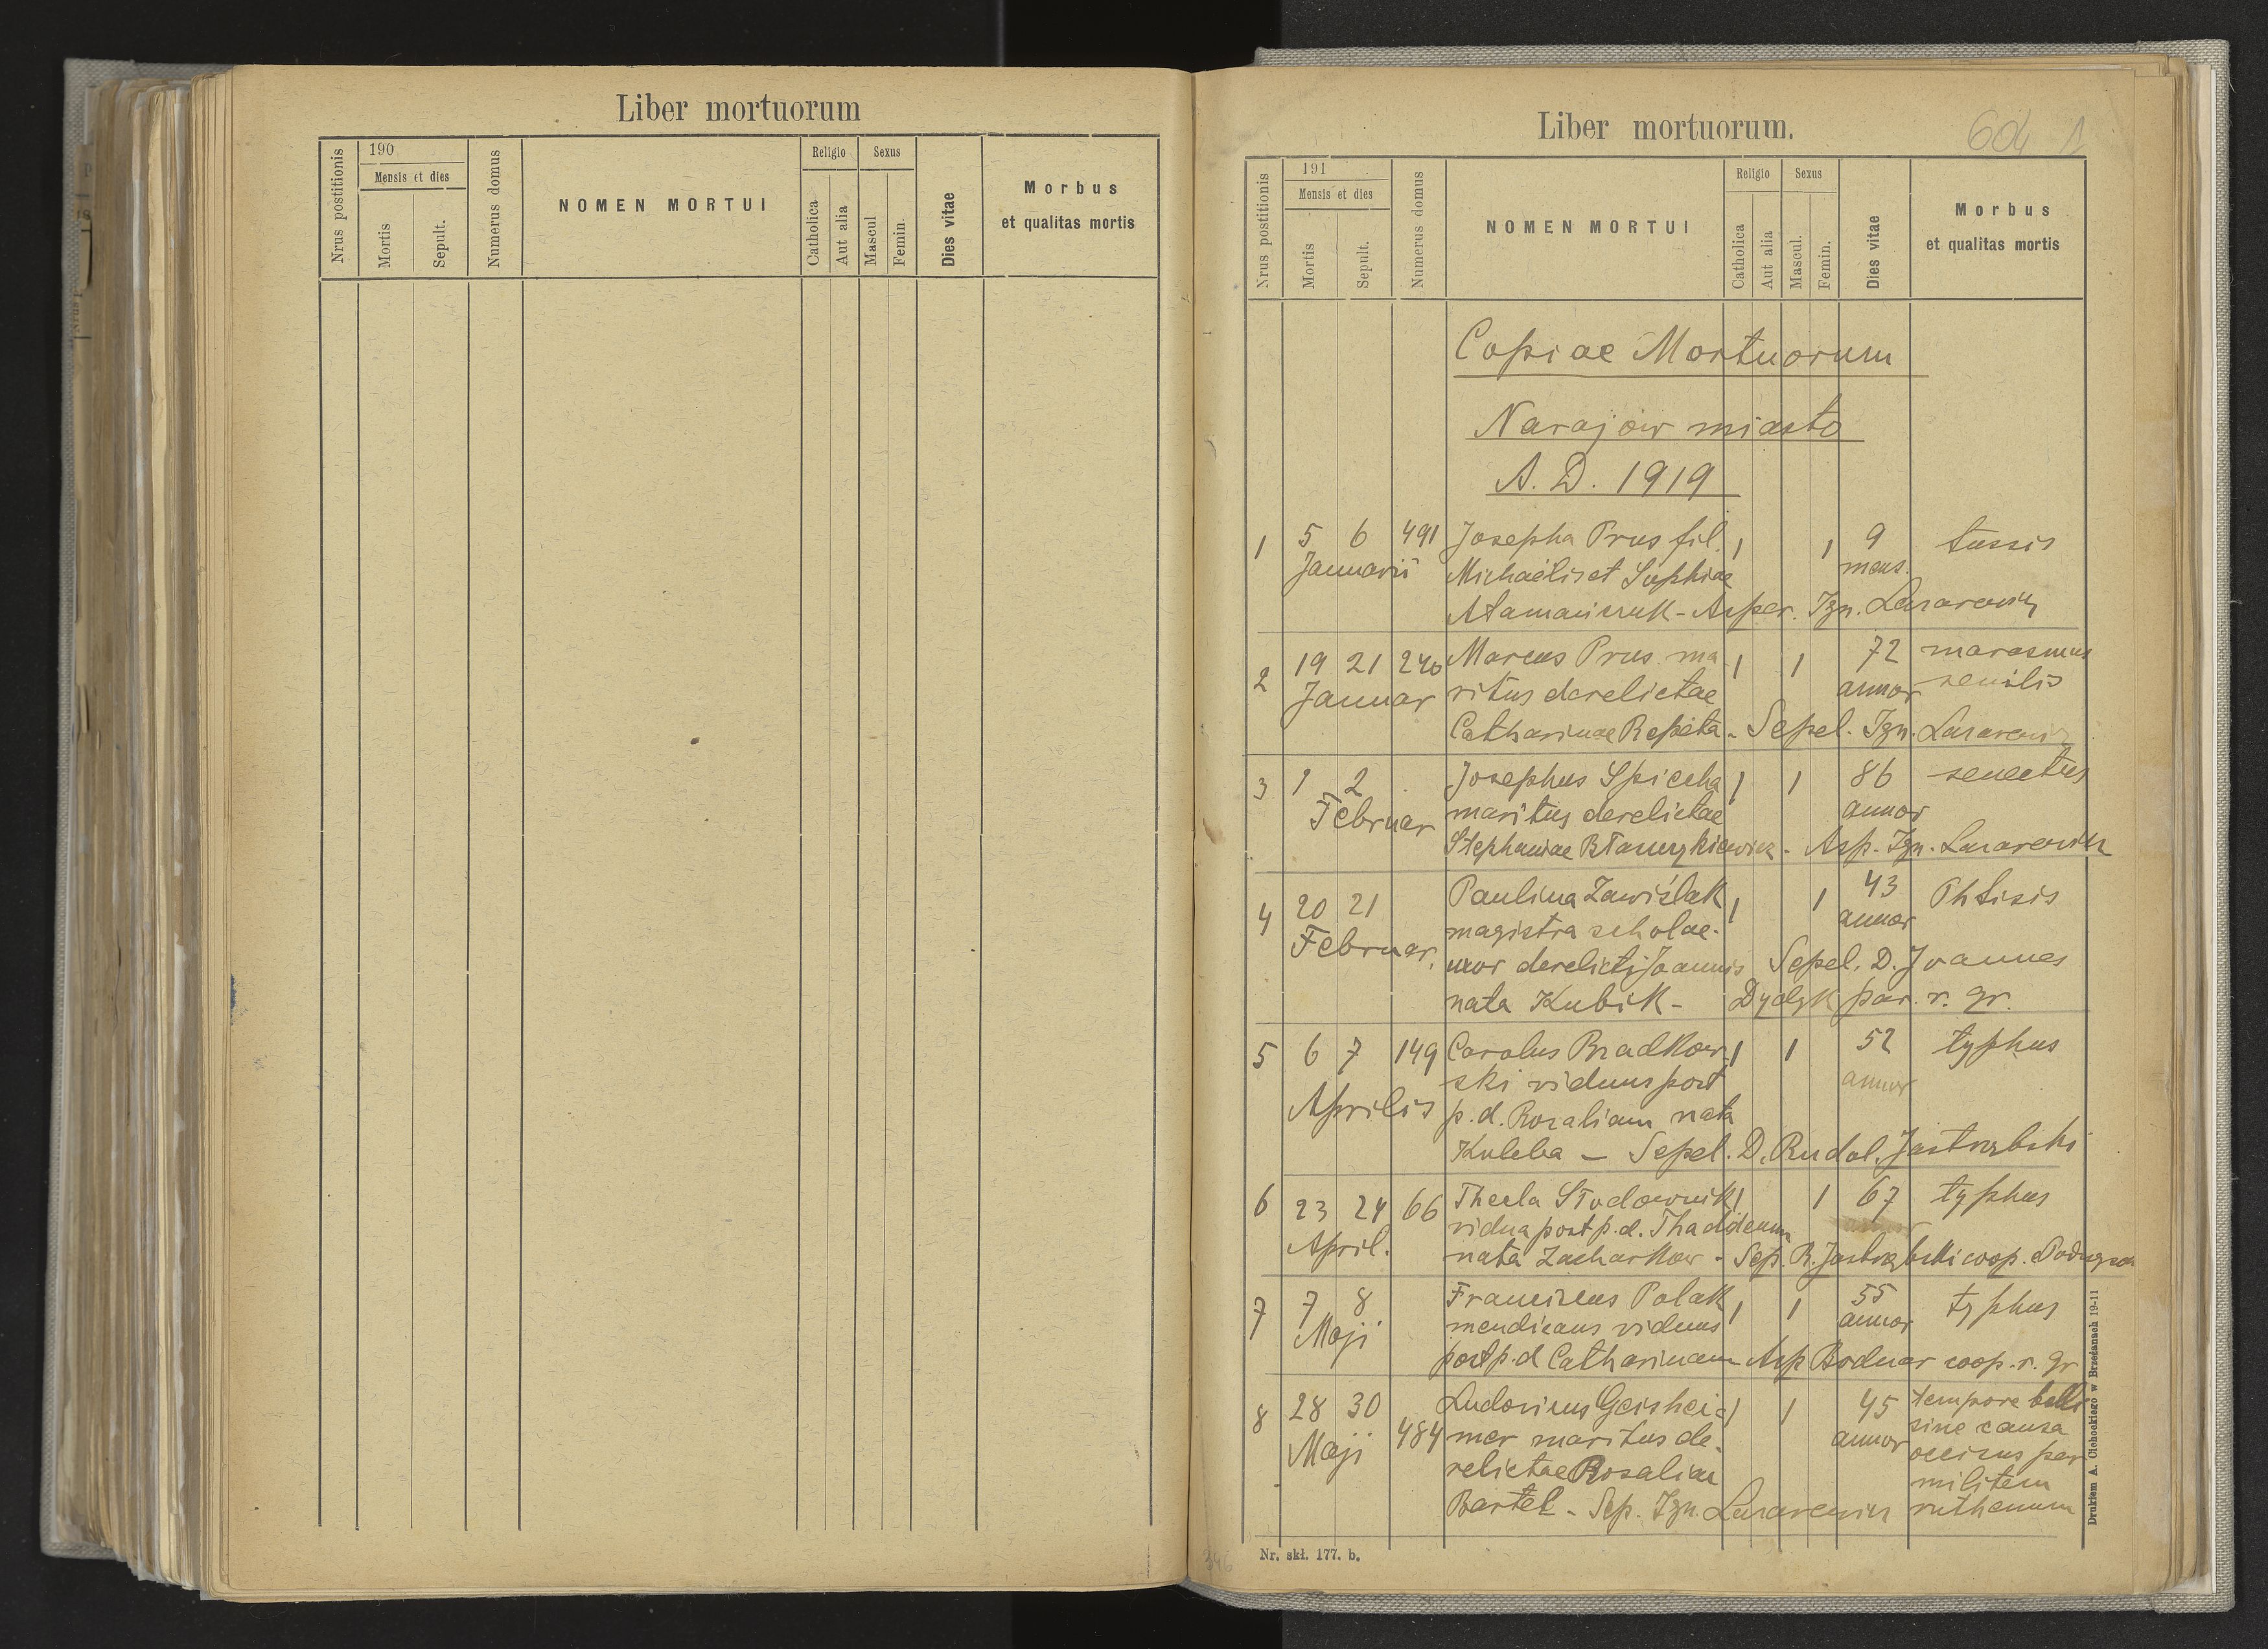 Liber mortuorum
Nrus postitionis
190
Mensis et dies
Mortis
Sepult.
Numerus domus
NOMEN MORTUI
Religio
Catholica
Aut alia
Sexus
Mascul
Femin.
Dies vitae
Morbus
et qualitas mortis
Liber mortuorum.
604 1
Nrus postitionis
191
Mensis et dies
Mortis
Sepult.
Numerus domus
NOMEN MORTUI
Religio
Catholica
Aut alia
Sexus
Mascul.
Femin.
Dies vitae
Morbus
et qualitas mortis
Copiae Mortuorum
Narajow miasto
A. D. 1919
1 5 6 491 Josepha Prus fil. 1 1 9 tussis
Januarii Michaelis et Sophiae mens.
Atamańczuk - Asper. Ign. Lazarewicz
2 19 21 240 Marcus Prus ma 1 1 72 marasmus
Januar ritus derelictae annor senilis
Catharinae Repeta - Sepel. Ign. Lazarewicz
3 1 2 Josephus Spiceha 1 1 86 senectus
Februar maritus derelictae annor
Stephaniae - Asp. Ign. Lazarewicz
4 20 21 Paulina Zawiślak 1 1 43 Phtisis
Februar. magistra scholae annor
uxor derelicti Joannis Sepel. D. Joannes
nata Kubik - Dydyk par. r. gr.
5 6 7 149 Carolus Bradkow- 1 1 52 typhus
ski viduus post annor
Aprilis p. d. Rozaliam nata
Kuleba - Sepel. D. Rudol. Jastrzębski
6 23 24 66 Thecla Stodownik 1 1 67 typhus
vidua post p. d. Thaddeum annor
April. nata Zacharkow - Sep. R. Jastrzębski coop.
7 7 8 Franciscus Polak 1 1 55 typhus
Maji mendicans viduus annor
post p. d Catharinam Asp Bodnar coop. r. gr
8 28 30 484 Ludovicus Geishei- 1 1 45 tempore belli
Maji mer maritus de- annor sine causa
relictae Rosaliae occisus per
militem
Bartel - Sep. Ign. Lazarewicz ruthenum
Drukiem A. Cichockiego w Brzeżanach 19-11
346
Nr. skł. 177. b.